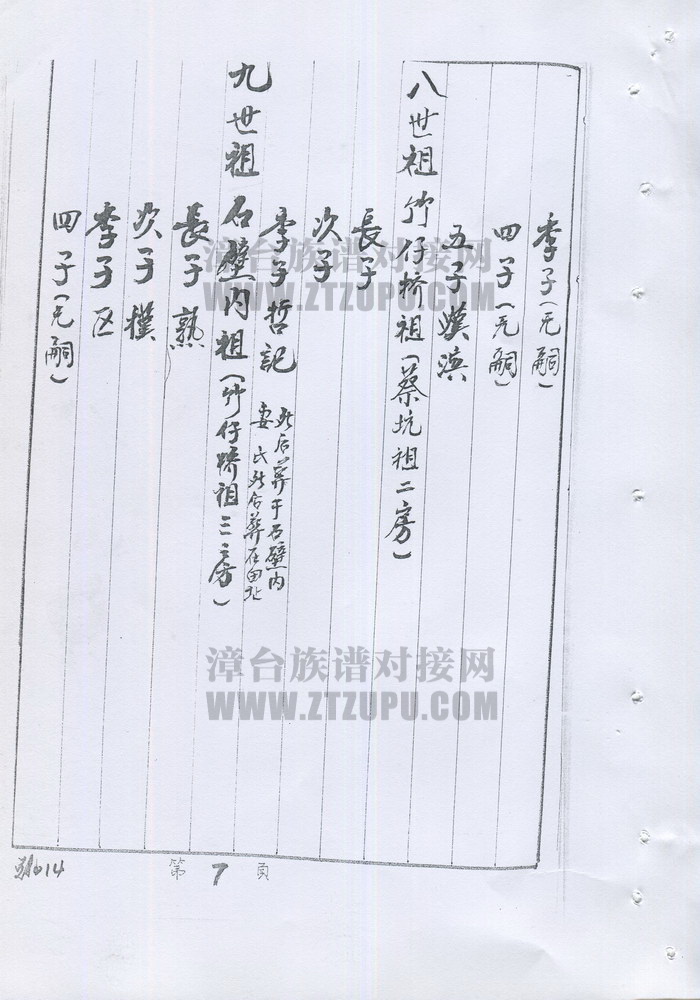 季子（无嗣）
四子（无嗣）
五子嘆濱
八世祖 竹仔桥祖（蔡坑祖二房）
長子
次子
季子哲記 死后葬于石壁内
妻 氏死后葬在田址
九世祖 石壁内祖（竹仔桥祖三房）
長子熟
次子樸
季子区
四子（无嗣）
漳台族谱对接网
WWW.ZTZUPU.COM
漳台族谱对接网
WWW.ZTZUPU.COM
14
第 7 頁